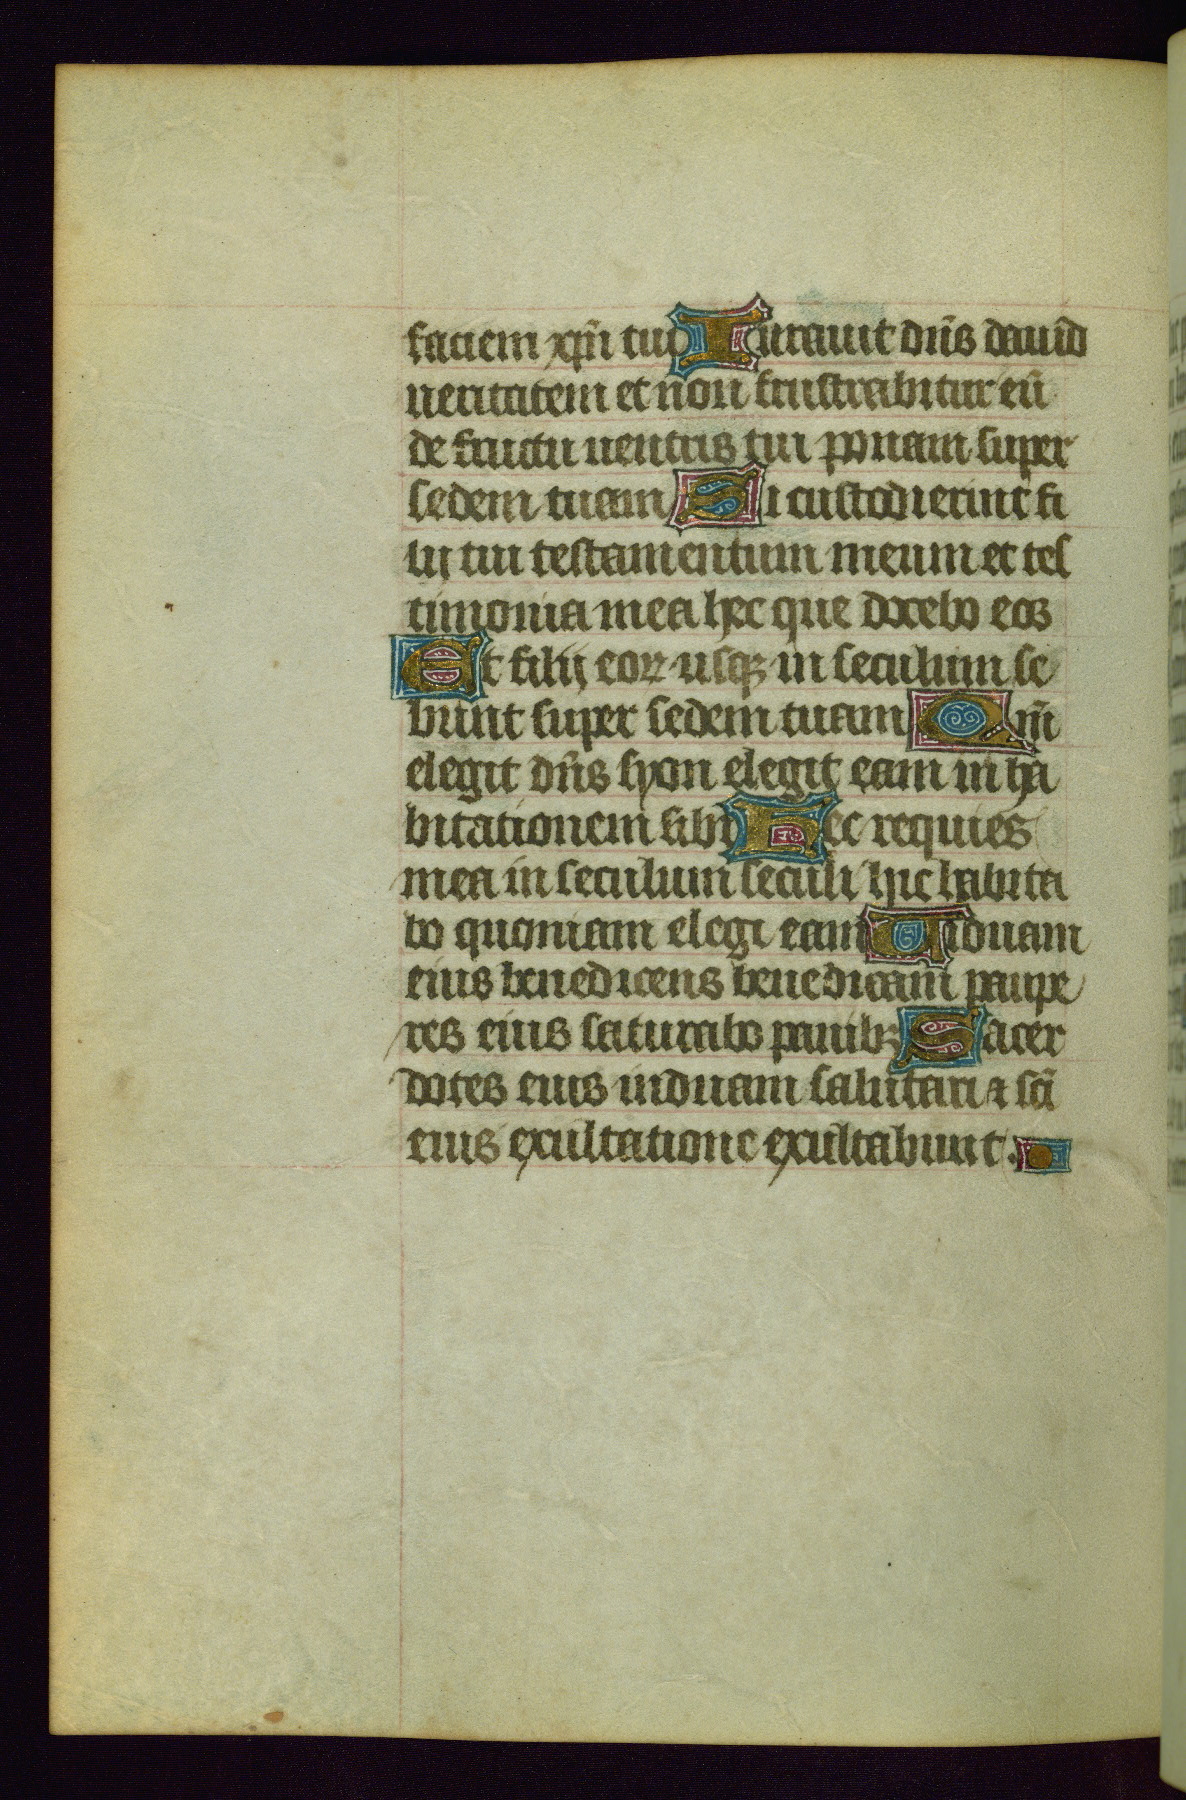 faciem xp̄i tui Iurauit dn̄s dauid
ueritatem et non frustrabitur eū
de fructu uentris tui ponam super
sedem tuam Si custodierint fi
lij tui testamentum meum et tes
timonia mea hec que docebo eos
Et filij eoꝝ usqꝫ in seculum se
bunt super sedem tuam Qm̄
elegit dn̄s syon elegit eam in ha
bitationem sibi Hec requies
mea in seculum seculi hic habita
bo quoniam elegi eam Uiduam
eius benedicens benedicam paupe
res eius saturabo panibꝫ Sacer
dotes eius induam salutari ⁊ sc̄i
eius exultatione exultabunt.